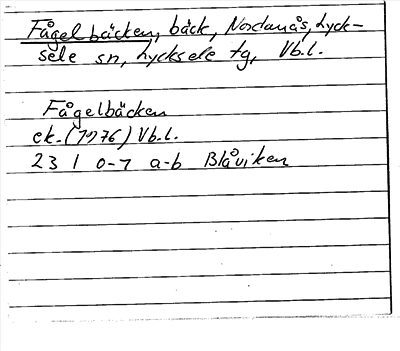 Fågelbäcken, bäck, Nordanås, Lyck-
sele sn, Lycksele tg, Vb.l.
Fågelbäcken
ek. (1976) Vb.l.
23 I 0-1 a-b Blåviken